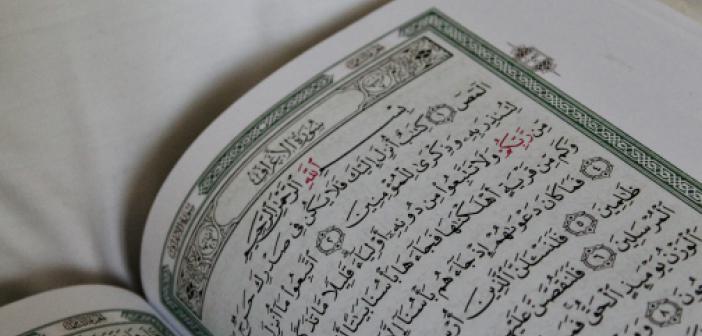 سُورَةُ الْأَعْرَافِ
بِسْمِ اللَّهِ الرَّحْمَٰنِ الرَّحِيمِ
الٓمٓصٓ ١ كِتَٰبٌ أُنزِلَ إِلَيْكَ فَلَا يَكُن فِي صَدْرِكَ حَرَجٌ
لِتُنذِرَ بِهِۦ وَذِكْرَىٰ لِلْمُؤْمِنِينَ ٢ ٱتَّبِعُوا۟ مَآ أُنزِلَ
مِّن رَّبِّكُمْ وَلَا تَتَّبِعُوا۟ مِن دُونِهِۦٓ أَوْلِيَآءَ قَلِيلًا مَّا
وَكَم مِّن قَرْيَةٍ أَهْلَكْنَٰهَا فَجَآءَهَا بَأْسُنَا بَيَٰتًا
٤ فَمَا كَانَ دَعْوَىٰهُمْ إِذْ جَآءَهُم بَأْسُنَآ
ظَٰلِمِينَ ٥ فَلَنَسْـَٔلَنَّ ٱلَّذِينَ
ٱلْمُرْسَلِينَ ٦ فَلَنَقُصَّنَّ
وَٱلْوَزْنُ يَوْمَئِذٍ ٱلْحَقُّ
٨